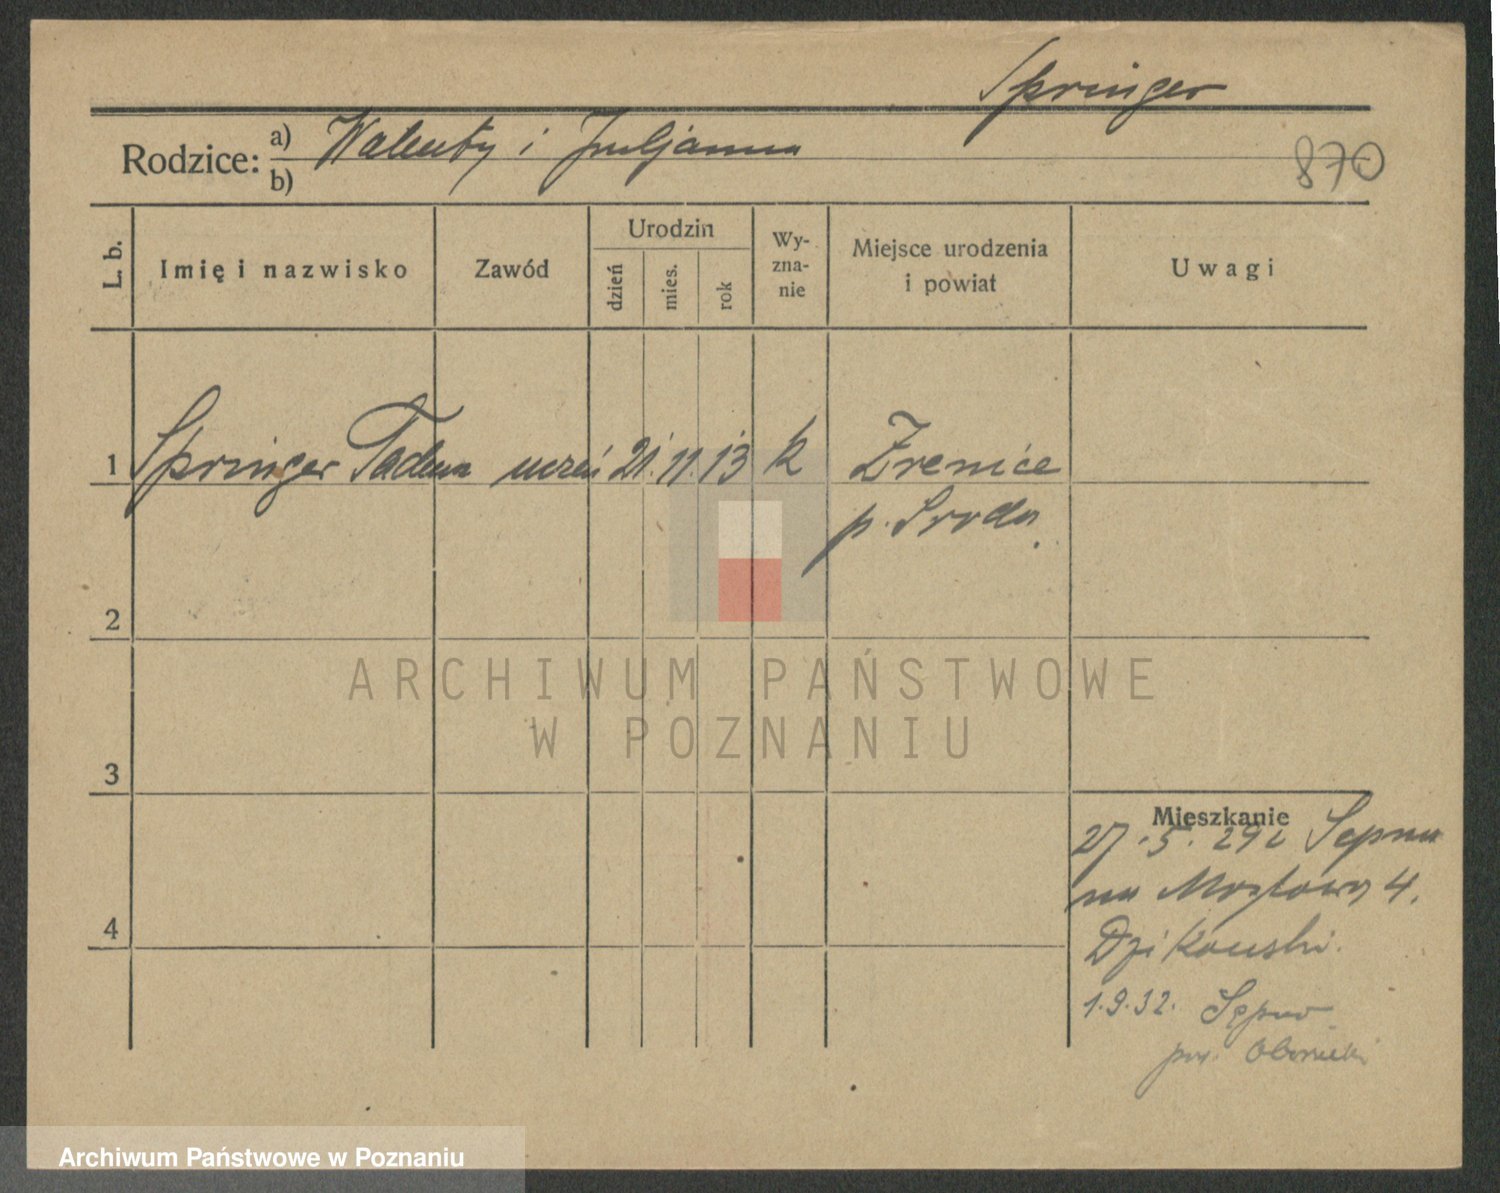 Springer
Rodzice: a) Walenty i Juljanna
b)
870
L. b.
Imię i nazwisko
Zawód
Urodzin
dzień
mies.
rok
Wy-
zna-
nie
Miejsce urodzenia
i powiat
Uwagi
1 Springer Tadeusz uczeń 21. 11. 13 k Zrenice
p. Środa
2
ARCHIWUM PAŃSTWOWE
W POZNANIU
3
Mieszkanie
27.5.29 z Sępna
na Mostową 4.
Dzikowski.
1.9.32. Sępno
pow. Obornicki
4
Archiwum Państwowe w Poznaniu